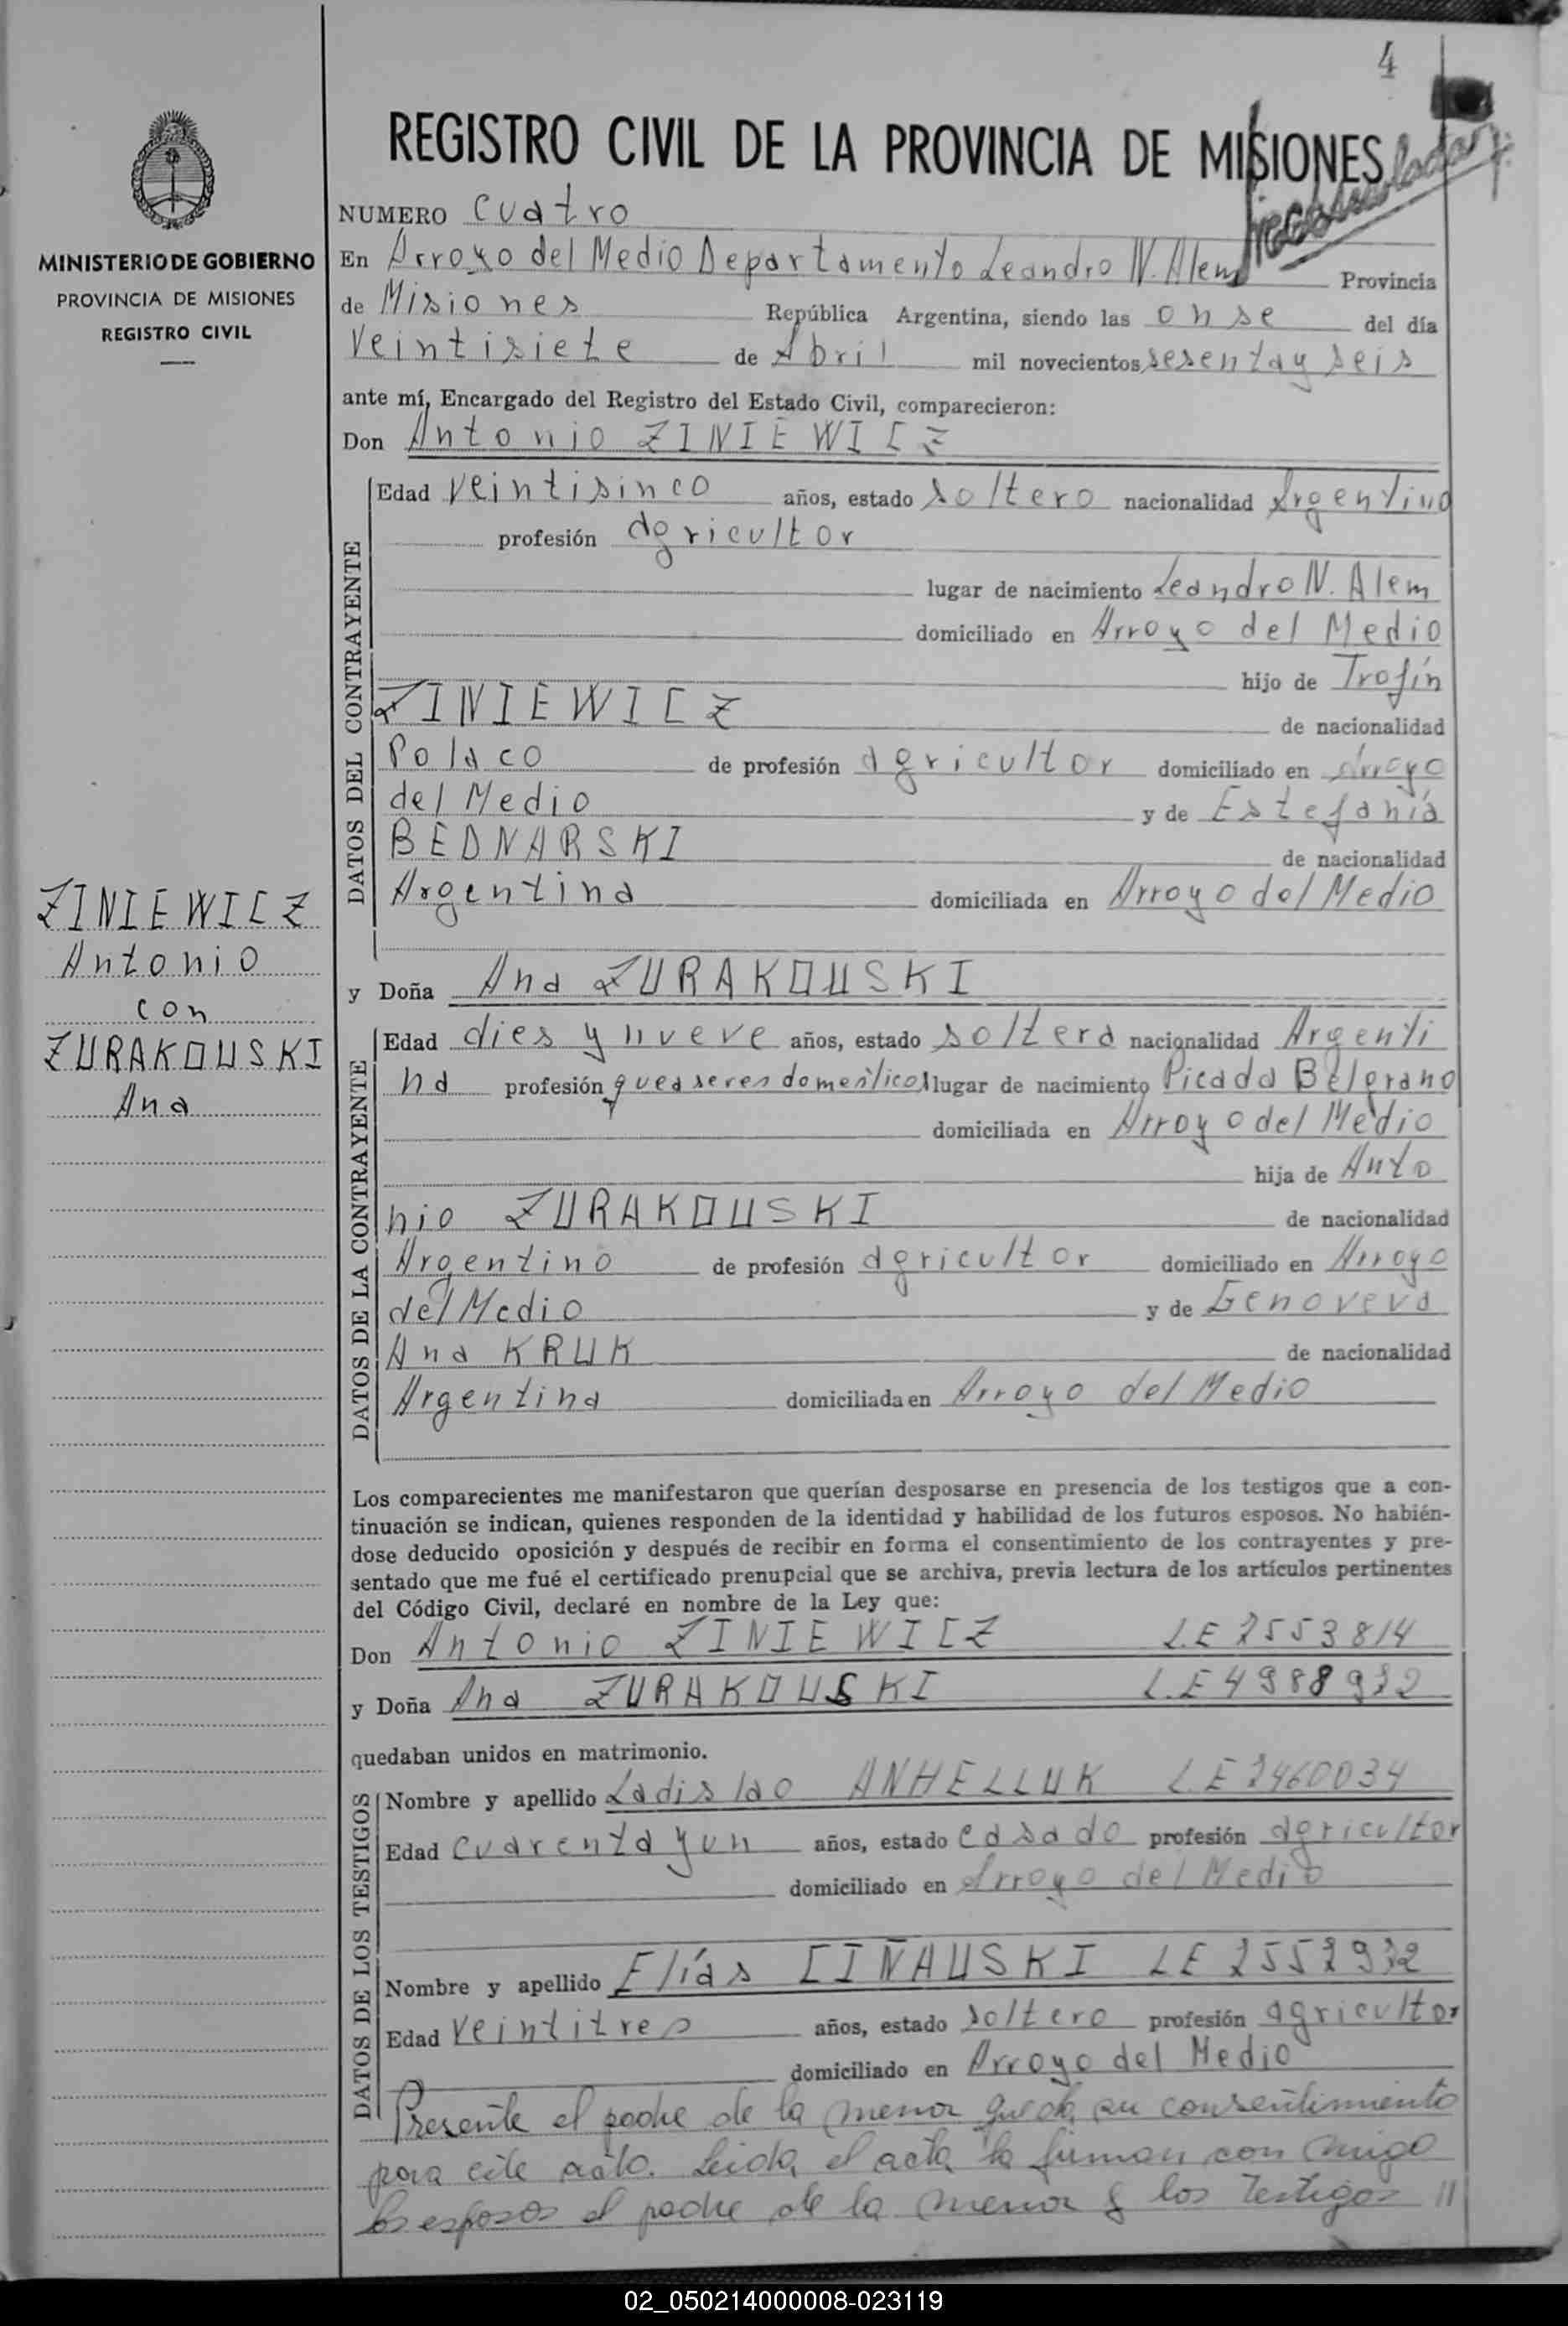 4
REGISTRO CIVIL DE LA PROVINCIA DE MISIONES
MINISTERIO DE GOBIERNO
PROVINCIA DE MISIONES
REGISTRO CIVIL
NUMERO cuatro
En Arroyo del Medio Departamento Leandro N. Alem Provincia
de Misiones República Argentina, siendo las onse del día
veintisiete de Abril mil novecientos sesenta y seis
ante mí, Encargado del Registro del Estado Civil, comparecieron:
Don Antonio ZINIEWICZ
DATOS DEL CONTRAYENTE
Edad veintisinco años, estado soltero nacionalidad Argentino
profesión agricultor
lugar de nacimiento Leandro N. Alem
domiciliado en Arroyo del Medio
hijo de Trofín
ZINIEWICZ de nacionalidad
Polaco de profesión agricultor domiciliado en Arroyo
del Medio y de Estefanía
BEDNARSKI de nacionalidad
Argentina domiciliada en Arroyo del Medio
ZINIEWICZ
Antonio
con
ZURAKOUSKI
Ana
y Doña Ana ZURAKOUSKI
DATOS DE LA CONTRAYENTE
Edad dies y nueve años, estado soltera nacionalidad Argenti
na profesión queaseres domesticos lugar de nacimiento Picada Belgrano
domiciliada en Arroyo del Medio
hija de Anto
nio ZURAKOUSKI de nacionalidad
Argentino de profesión agricultor domiciliado en Arroyo
del Medio y de Genoveva
Ana KRUK de nacionalidad
Argentina domiciliada en Arroyo del Medio
Los comparecientes me manifestaron que querían desposarse en presencia de los testigos que a con-
tinuación se indican, quienes responden de la identidad y habilidad de los futuros esposos. No habién-
dose deducido oposición y después de recibir en forma el consentimiento de los contrayentes y pre-
sentado que me fué el certificado prenupcial que se archiva, previa lectura de los artículos pertinentes
del Código Civil, declaré en nombre de la Ley que:
Don Antonio ZINIEWICZ L.E 7553814
y Doña Ana ZURAKOUSKI L.E 4988932
quedaban unidos en matrimonio.
DATOS DE LOS TESTIGOS
Nombre y apellido Ladislao ANHELLUK L.E 7460034
Edad cuarenta y un años, estado casado profesión agricultor
domiciliado en Arroyo del Medio
Nombre y apellido Elías CIÑAUSKI LE 7557932
Edad veintitres años, estado soltero profesión agricultor
domiciliado en Arroyo del Medio
Presente el padre de la menor que da su consentimiento
para este acto. Leida el acta la firman con migo
los esposos el padre de la menor y los testigos //
02_050214000008-023119